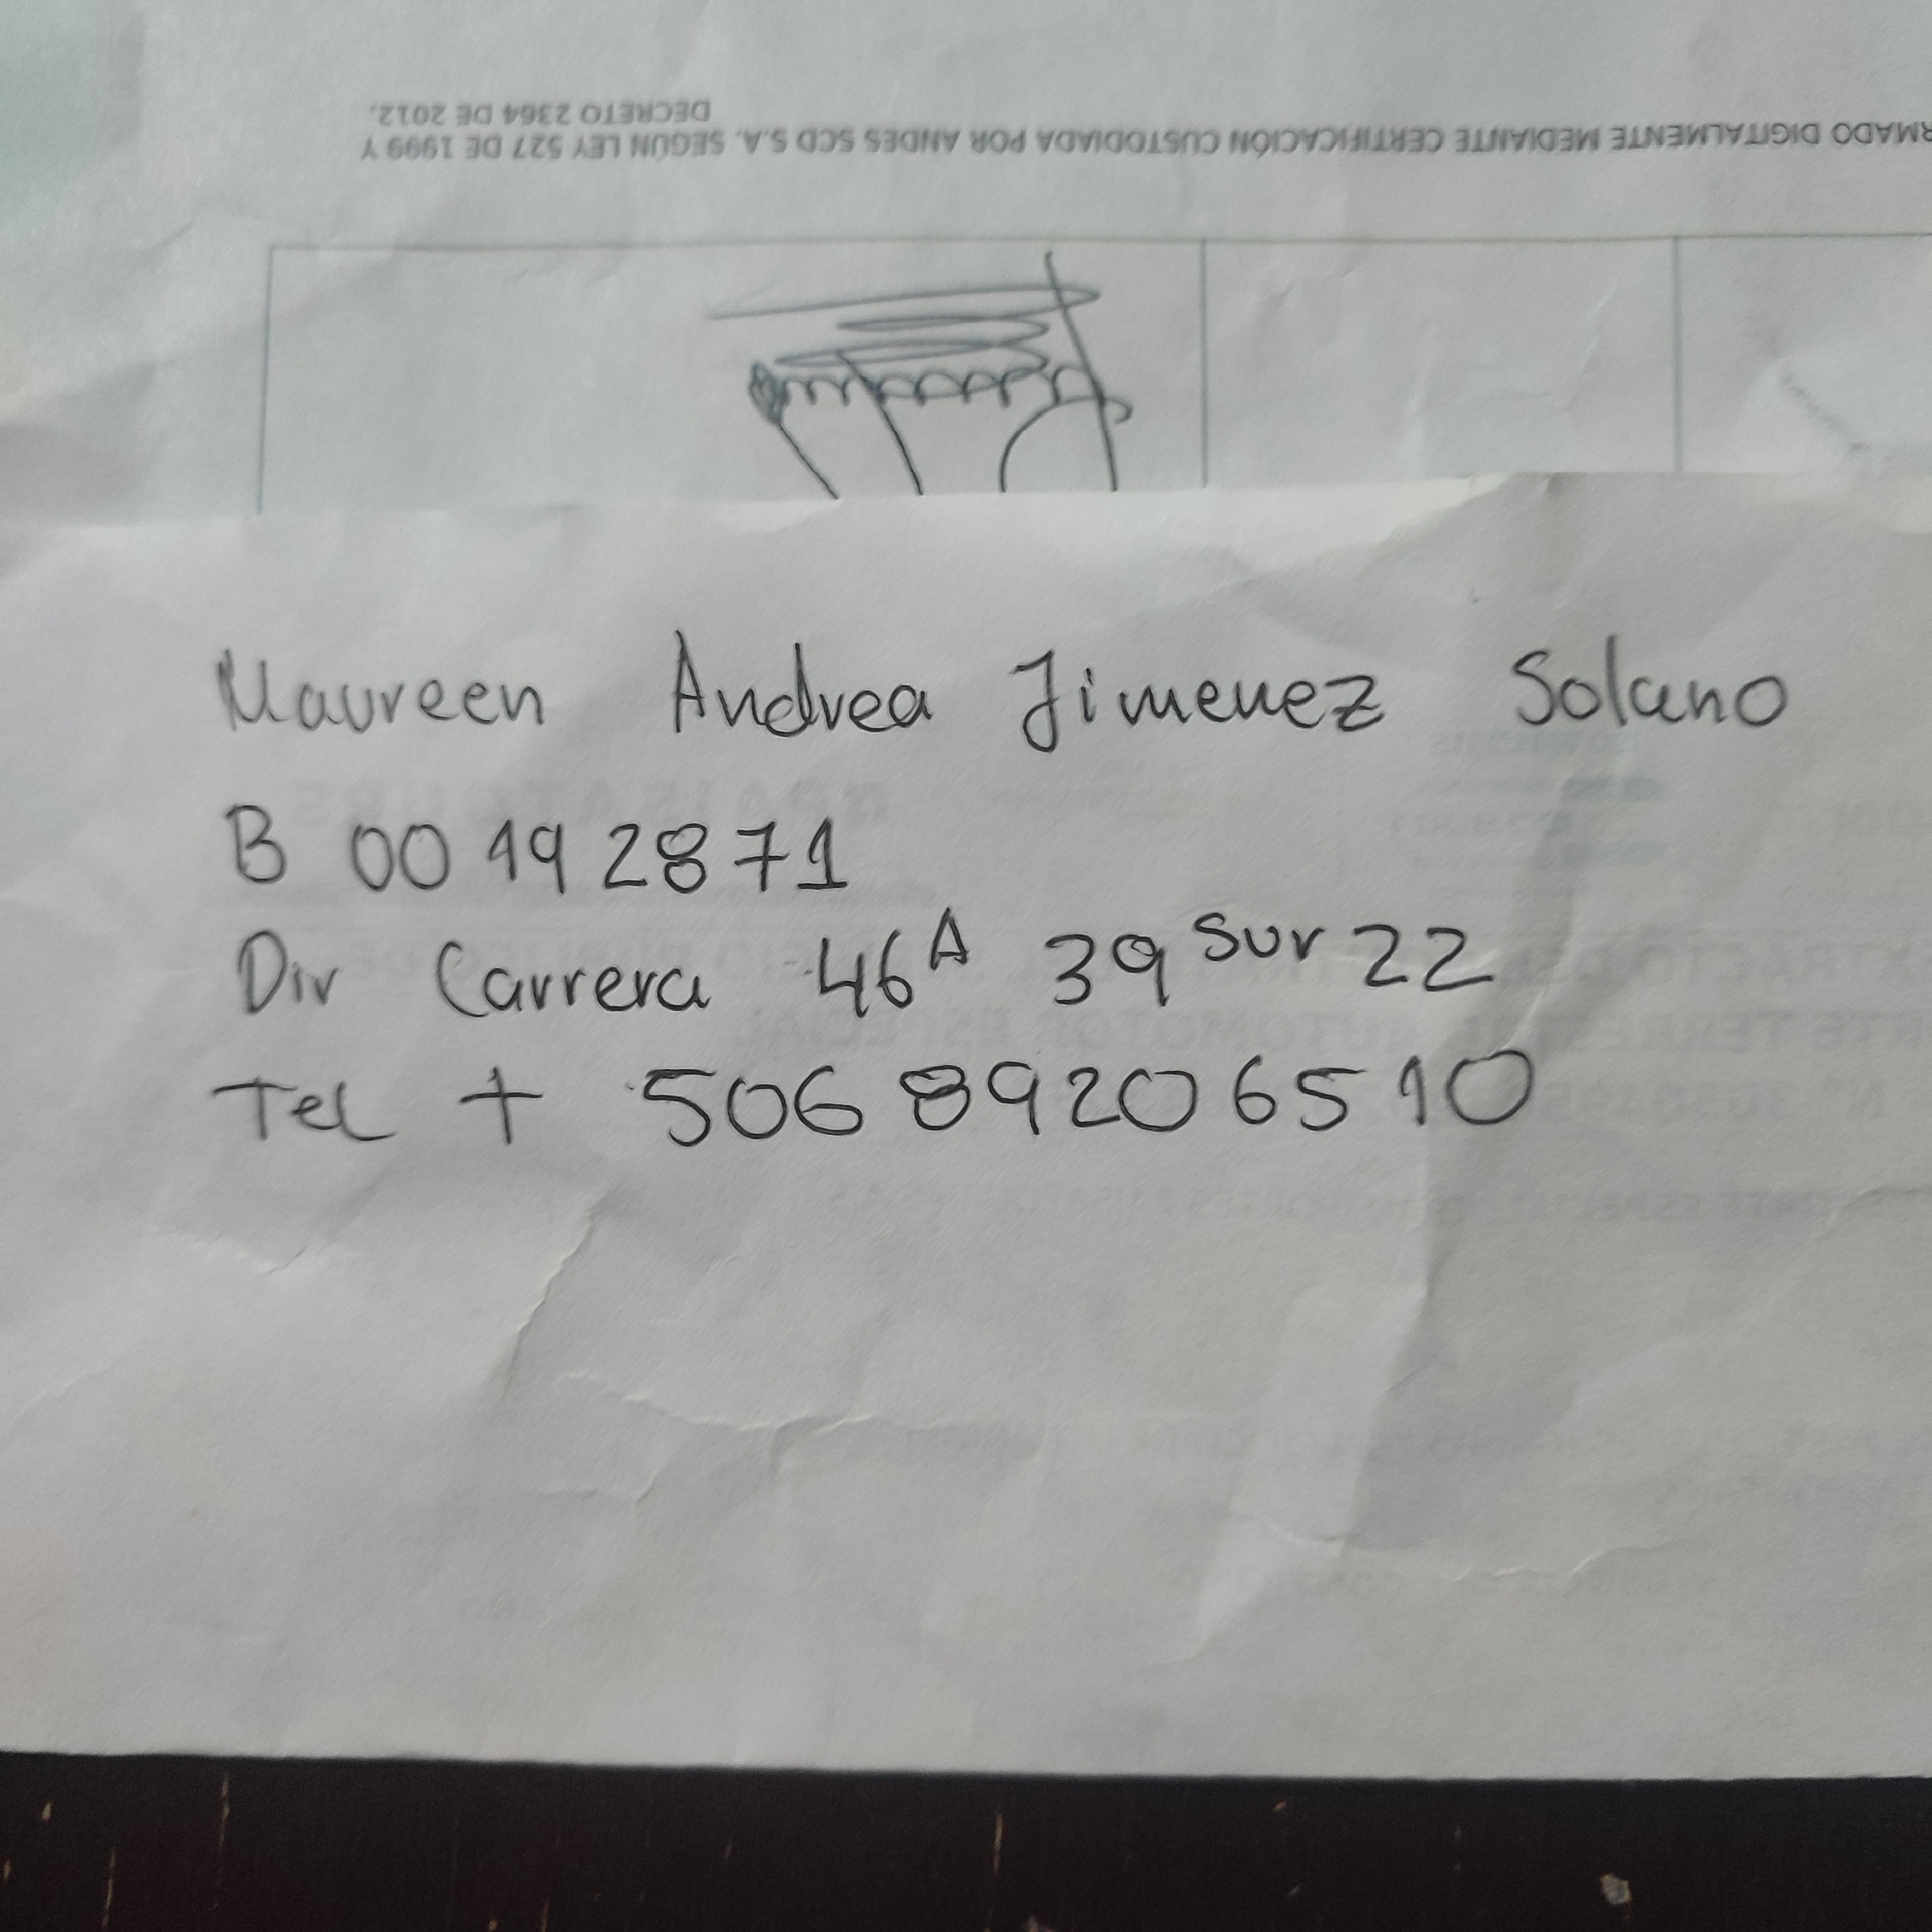 DECRETO 2364 DE 2012.
RMADO DIGITALMENTE MEDIANTE CERTIFICACIÓN CUSTODIADA POR ANDES SCD S.A. SEGÚN LEY 527 DE 1999 Y
Maureen Andrea Jimenez Solano
B 00192871
Dir Carrera 46A 39 sur 22
Tel + 506 89206510